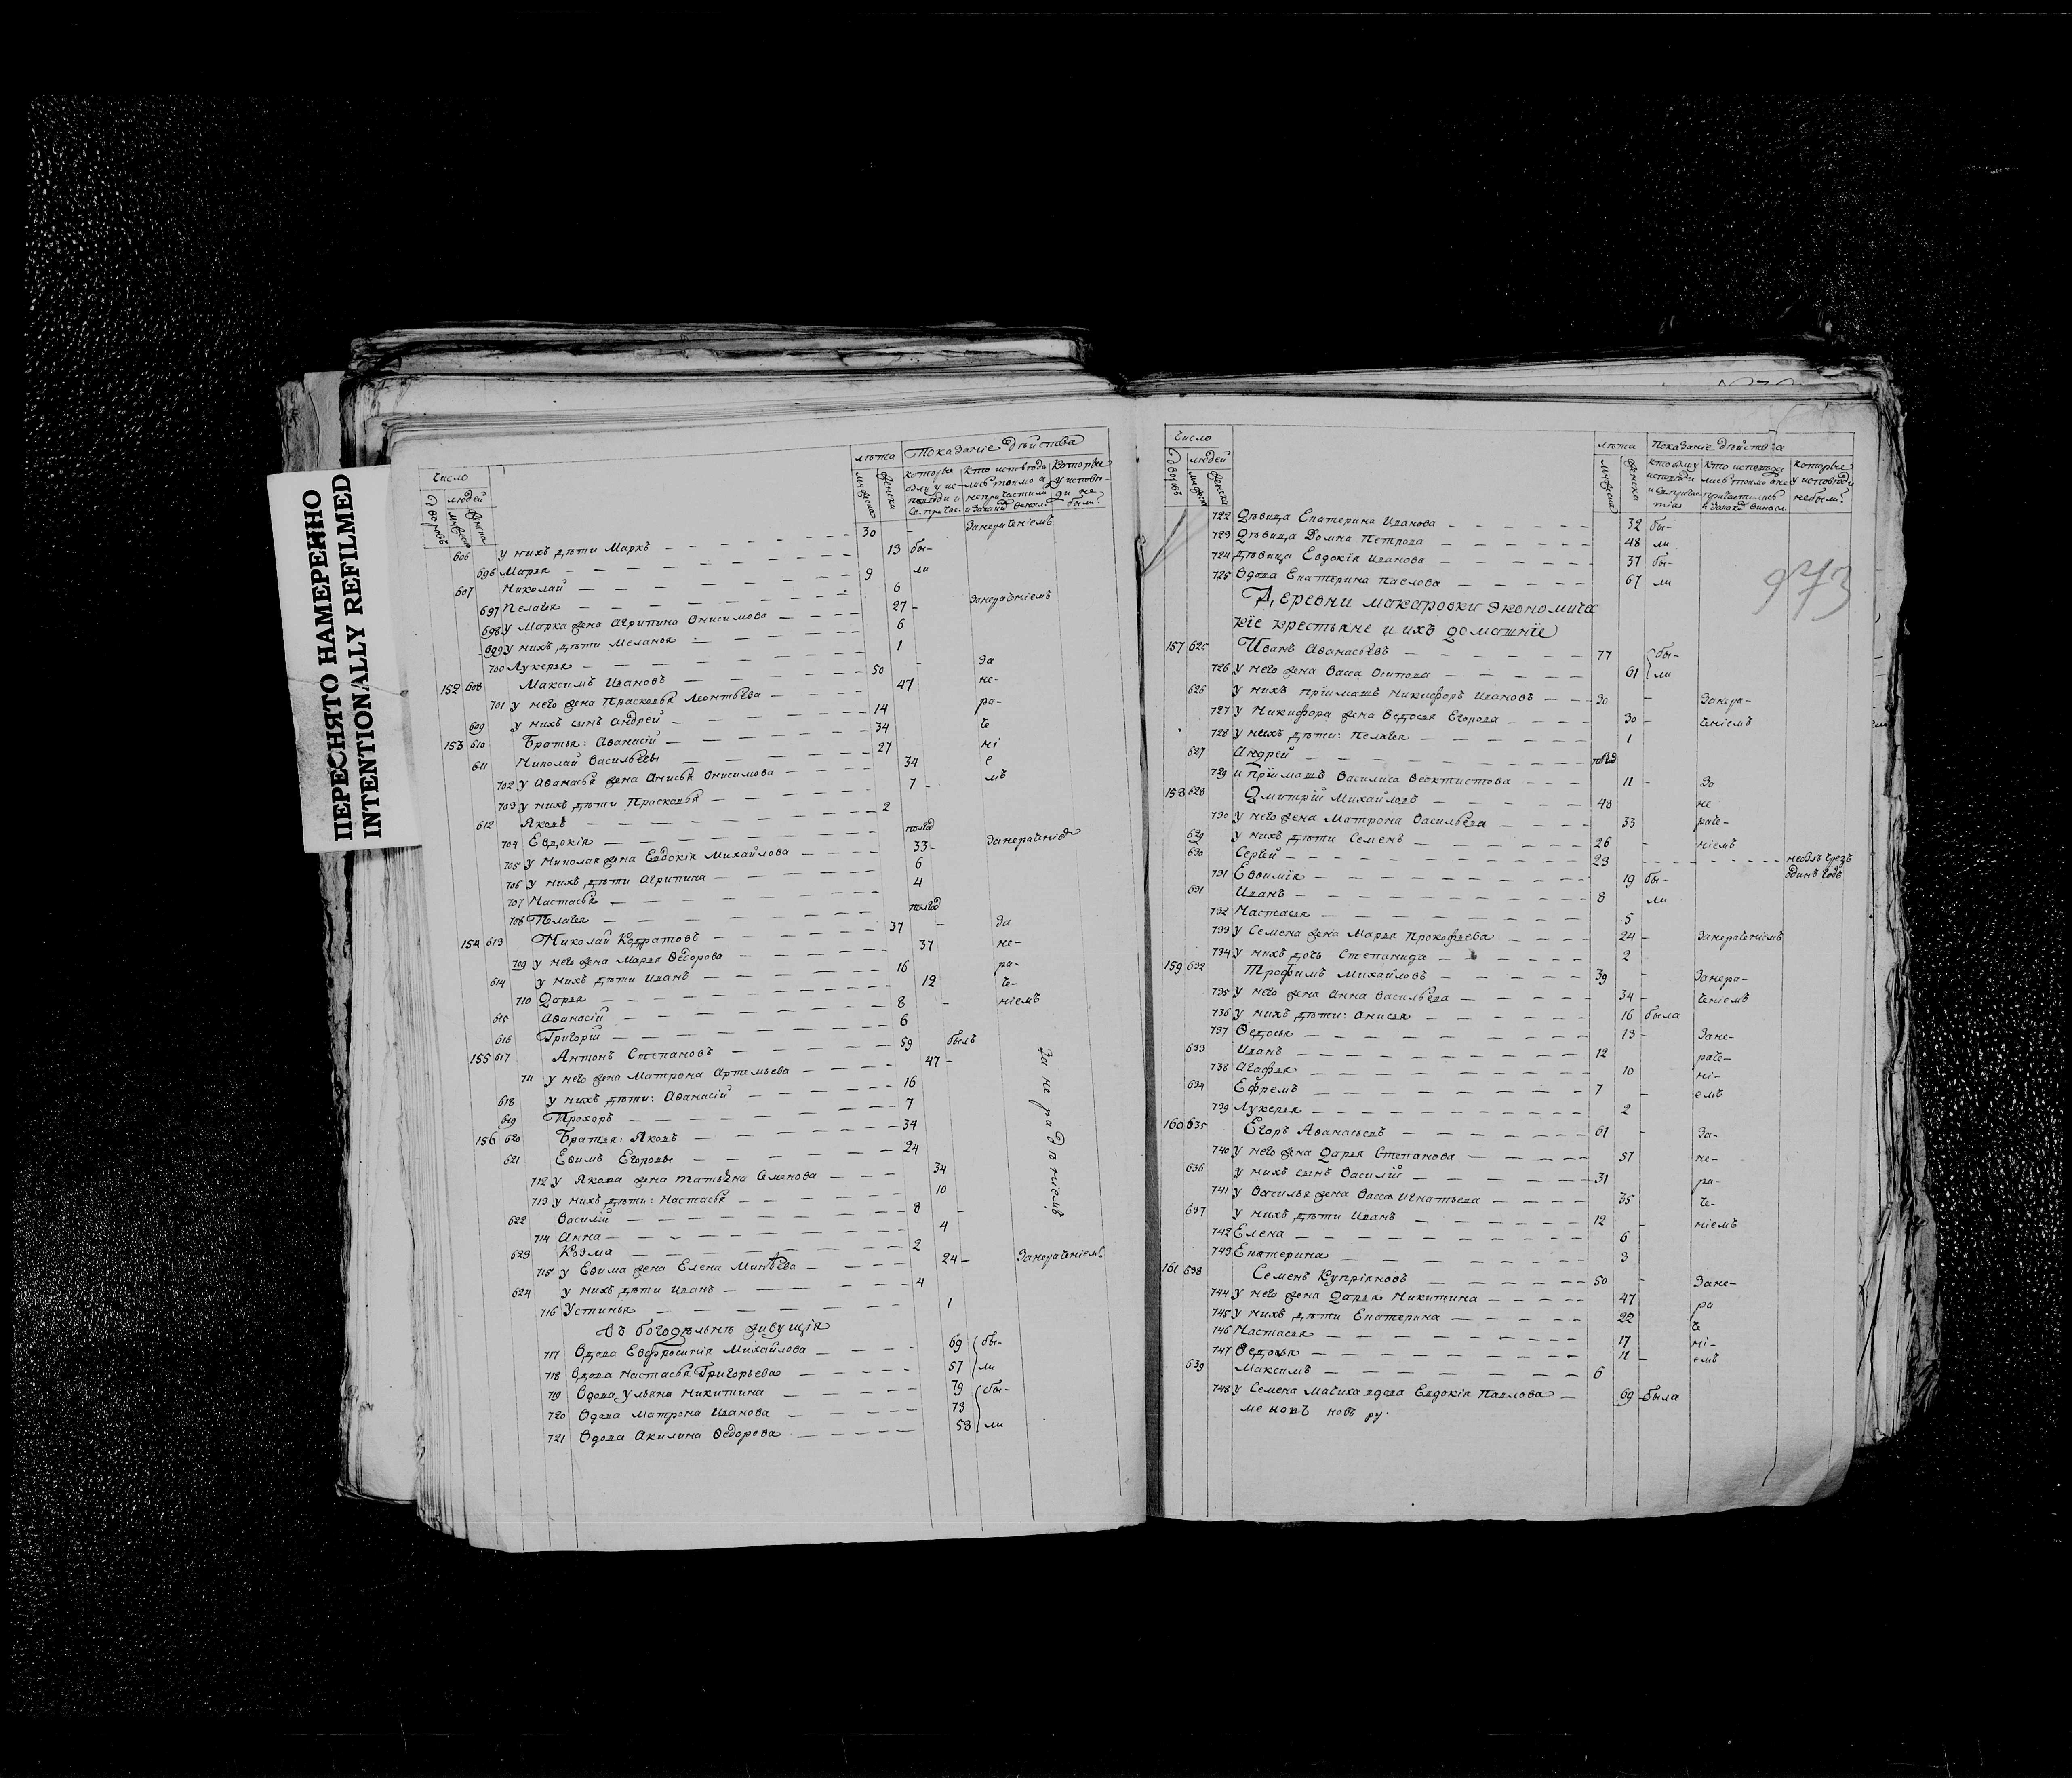 ПЕРЕСНЯТО НАМЕРЕННО
INTENTIONALLY REFILMED
Число лѣта Показаніе дѣйства
дворовъ людей мужеска женска мужеска женска
606 у нихъ дѣти Маркъ 30 - Занераченіемъ
696 Марья 13 бы-
607 Николай 9 ли
697 Пелагея 6
698 у Марка жена Агрипина Онисимова 27 - Занераченіемъ
699 у нихъ дѣти Меланья 6
700 Лукерья 1
152 608 Максимъ Ивановъ 50 - За
701 у него жена Прасковья Леонтьева 47 не-
609 у нихъ сынъ Андрей 14 ра-
153 610 Братья: Аѳанасій 34 че
611 Николай Васильевы 27 ні
702 у Аѳанасья жена Анисья Онисимова 34 е
703 у нихъ дѣти Прасковья 7 - мъ
612 Яковъ 2
704 Евдокія полгод
705 у Николая жена Евдокія Михайлова 33 -
706 у нихъ дѣти Агрипина 6
707 Настасья 4
708 Пелагея полгод
154 613 Николай 37 - за
709 у него жена Марья Ѳедорова 37 не-
614 у нихъ дѣти Иванъ 16 ра-
710 Дарья 12 че-
615 Аѳанасій 8 - ніемъ
616 Григорій 6
155 617 Антонъ Степановъ 59 былъ
711 у него жена Матрона Артемьева 47 -
618 у нихъ дѣти: Аѳанасій 16
619 Прохоръ 7
156 620 Братья: Яковъ 34
621 Еѳимъ Егоровы 24
712 у Якова жена Татьяна Семенова 34
713 у нихъ дѣти: Настасья 10
622 Василій 8 -
714 Анна 4
623 Козма 2
715 у Еѳима жена Елена 24 - Занераченіемъ
624 у нихъ дѣти Иванъ 4
716 Устинья 1
въ богодѣльнѣ живущія
717 Вдова Евфросинія Михайлова 69 бы-
718 Вдова Настасья Григорьева 57 ли
719 Вдова Ульяна Никитина 79 бы-
720 Вдова Матрона Иванова 73
721 Вдова Акилина Ѳедорова 58 ли
Число лѣта Показаніе дѣйства
дворовъ людей мужеска женска мужеска женска
722 Дѣвица Екатерина Иванова 32 бы-
723 Дѣвица Домна Петрова 48 ли
724 Дѣвица Евдокія Иванова 37 бы-
725 Вдова Екатерина Павлова 67 ли
973
Деревни Макаровки экономичес
кіе крестьяне и ихъ домашніе
157 625 Иванъ Аѳанасьевъ 77 бы-
726 у него жена Васса Осипова 61 ли
626 у нихъ пріимашъ Никифоръ Ивановъ 30 - Занера-
727 у Никифора жена Ѳедосья Егорова 30 - ченіемъ
728 у нихъ дѣти: Пелагея 1
627 Андрей полгод
729 и пріимашъ Василиса Ѳеоктистова 11 - За
158 628 Дмитрій Михайловъ 48 не
730 у него жена Матрона Васильева 33 раче-
629 у нихъ дѣти Семенъ 26 - ніемъ
630 Сергей 23 - - - одинъ годъ
731 Еѳимія 19 бы-
631 Иванъ 8 ли
732 Настасья 5
733 у Семена жена Марья Прокофьева 24 - Занераченіемъ
734 у нихъ дочь Степанида 2
159 632 Трофимъ Михайловъ 39 - Занера-
735 у него жена Анна Васильева 34 - ченіемъ
736 у нихъ дѣти: Анисья 16 была
737 Ѳедосья 13 - Зане-
633 Иванъ 12 раче-
738 Агафья 10 ні-
634 Ефремъ 7 - емъ
739 Лукерья 2
160 635 Егоръ Аѳанасьевъ 61 - За-
740 у него жена Дарья Степанова 57 не-
636 у нихъ сынъ Василій 31 ра-
741 у Василья жена Васса Игнатьева 35 че-
637 у нихъ дѣти Иванъ 12 - ніемъ
742 Елена 6
743 Екатерина 3
161 638 Семенъ Купріяновъ 50 - Зане-
744 у него жена Дарья Никитина 47 ра
745 у нихъ дѣти Екатерина 22 че
746 Настасья 17 ні-
747 Ѳедосья 11 - емъ
639 Максимъ 6
748 у Семена мачиха вдова Евдокія Павлова 69 была